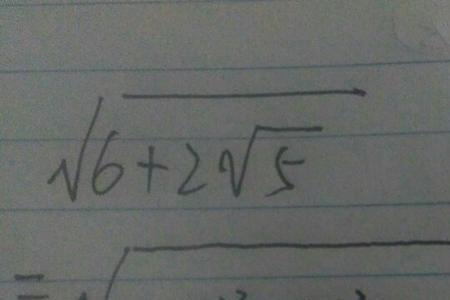 √6+2√5
=√